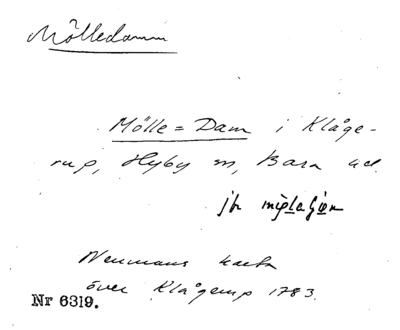 Mölledamm
Mölle=Dam i Klåge-
rup, Hyby sn, Bara hd.
jfr
Neumans karta
över Klågerup 1783.
Nr 6319.